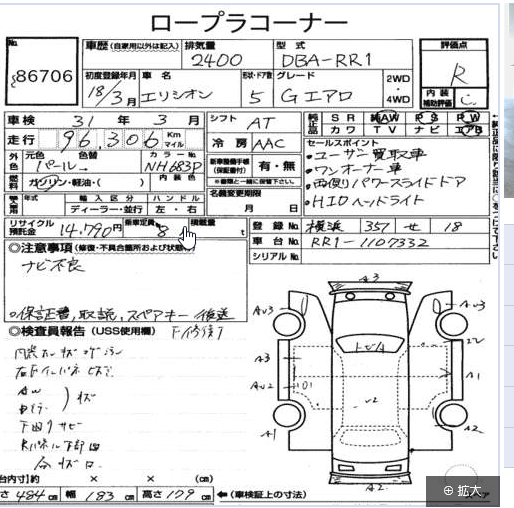 ロープラコーナー
No. 86706
車歴 (自家用以外は記入) 排気量 2400 型式 DBA-RR1 評価点 R
初度登録年月 18/3月 車名 エリシオン 形状・ドア数 5 グレード Gエアロ 2WD・4WD 内装補助評価 C
車検 31年 3月 シフト AT 純正品 SR AW PS PW
カワ TV ナビ エアB
走行 96,306 Km マイル 冷房 AAC セールスポイント
・ユーザー買取車
外色 元色 パール 色替 カラーNo NH683P 新車整備手帳(保証書付) 有・無 ・ワンオーナー車
燃料 ガソリン・軽油・( ) 内装色 ・両側パワースライドドア
名義変更期限 月 日 ・HIDヘッドライト
年式 輸入区分 ディーラー・並行 ハンドル 左・右
リサイクル預託金 14,790円 乗車定員 8 積載量 t 登録No. 横浜 357 せ 18
◎注意事項 (修復・不具合箇所および状態) 車台No. RR1-1107332
ナビ不良 シリアルNo.
・保証書,取説,スペアキー後送
◎検査員報告 (USS使用欄)
A3
AU3
トビA
A3
AU2
U2
A1
A1
A2
A2
台内寸)約 × × (cm)
さ 484cm 幅 183cm 高さ 179cm ←(車検証上の寸法)
拡大